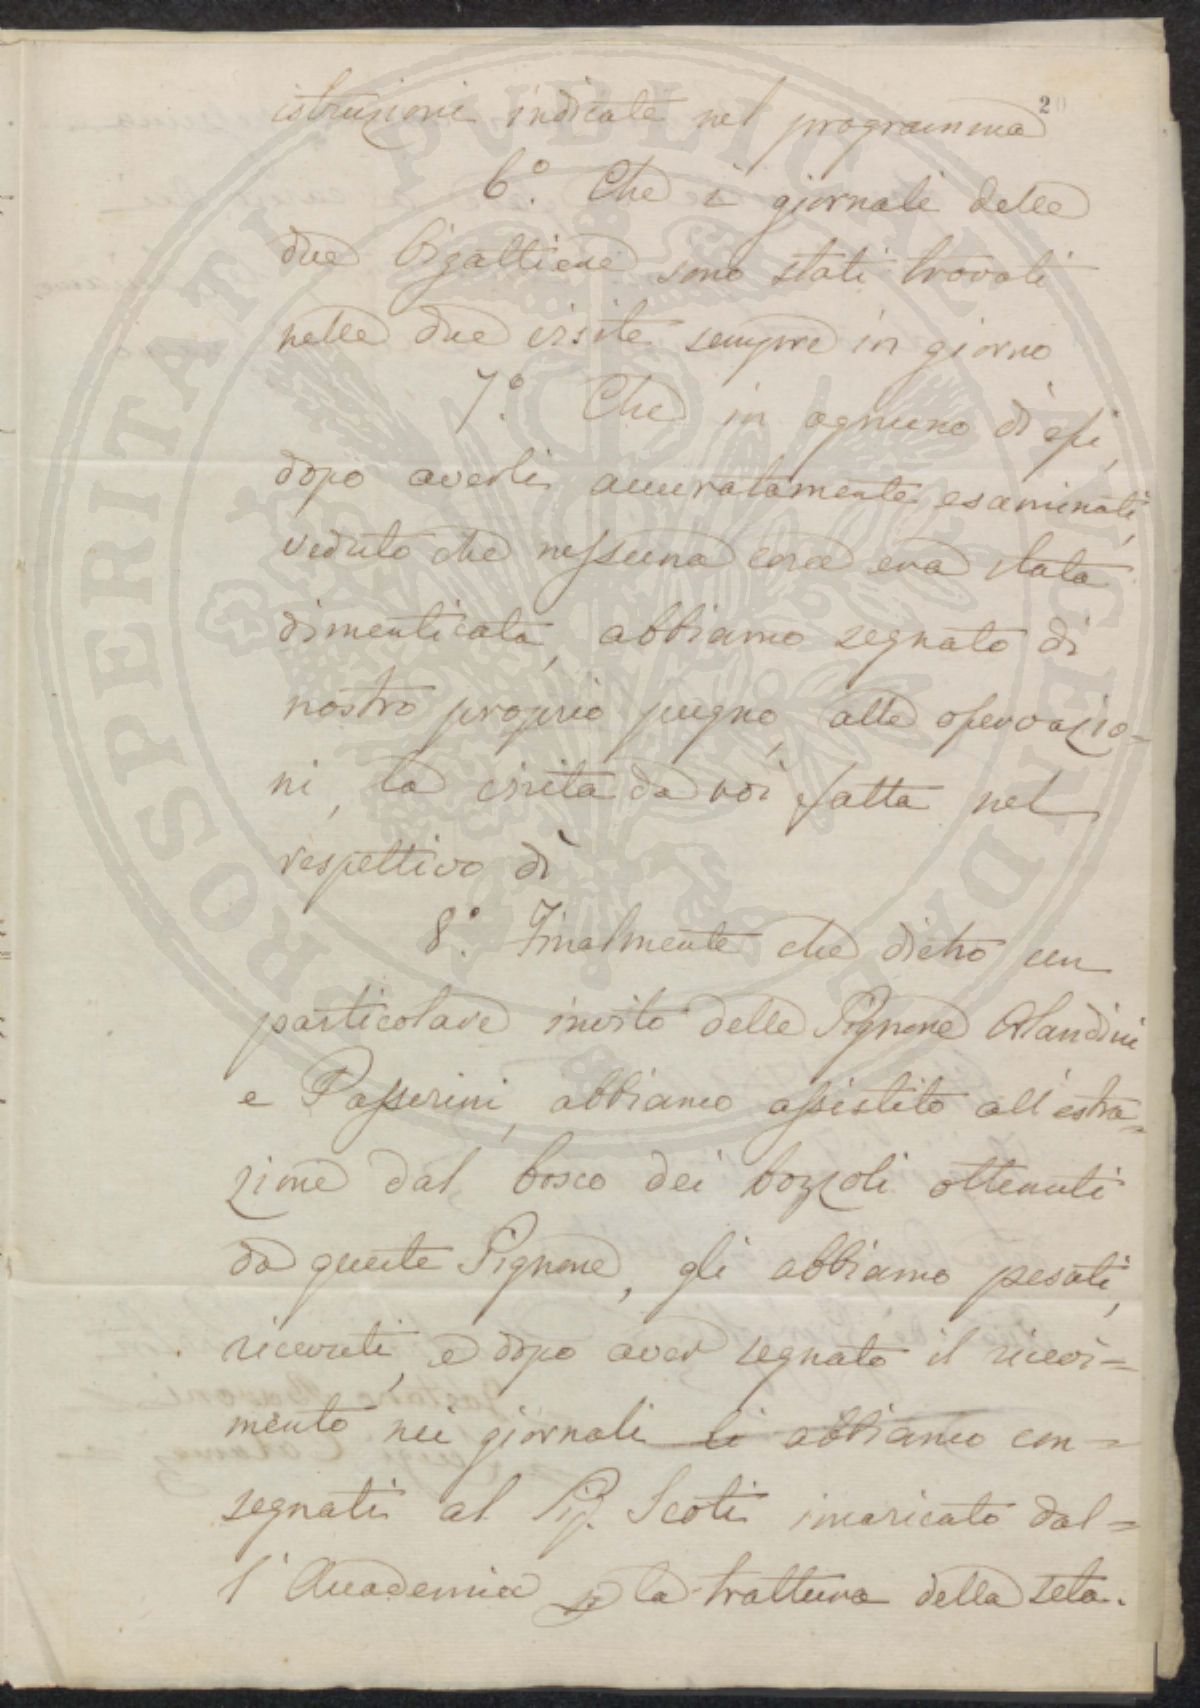 20
istruzioni indicate nel programma
6.° Che i giornali delle
due bigattiere sono stati trovati
nelle due visite sempre in giorno
7.° Che in ognuno di essi,
dopo averli accuratamente esaminati,
veduto che nessuna cosa era stata
dimenticata, abbiamo segnato di
nostro proprio pugno, alle osservazio=
ni, la visita da noi fatta nel
respettivo dì
8.° Finalmente che dietro un
particolare invito delle Signore Olandini
e Passerini, abbiamo assistito all'estra=
zione dal bosco dei bozzoli ottenuti
da queste Signore, gli abbiamo pesati,
ricevuti, e dopo aver segnato il ricevi=
mento nei giornali li abbiamo con=
segnati al Sig. Scoti incaricato dal=
l'Accademia per la trattura della seta.
PROSPERITATI PUBLICAE AUGENDAE